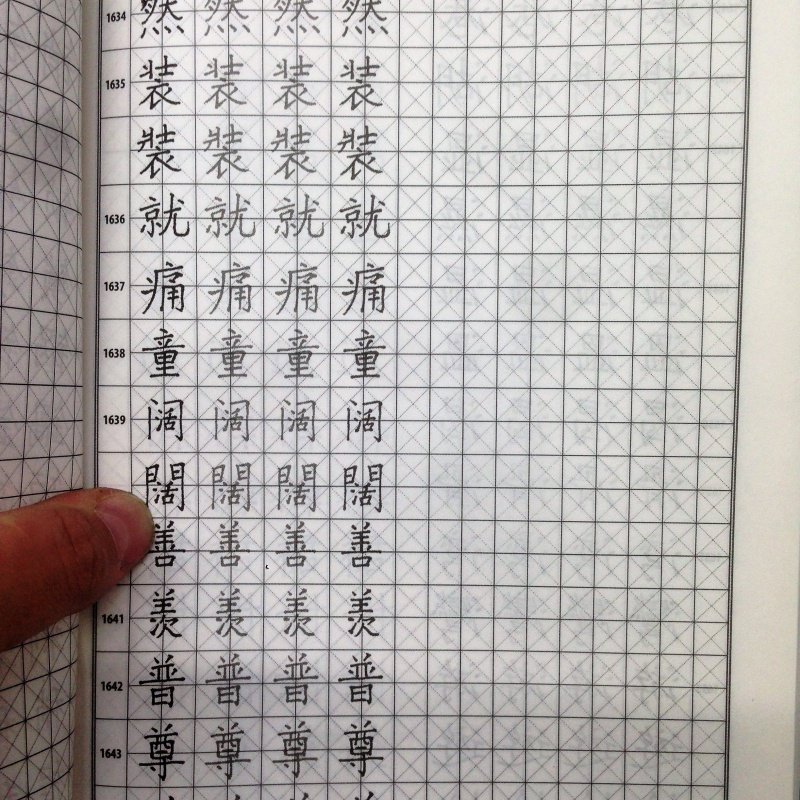 1634 然 然 然 然
1635 装 装 装 装
裝 裝 裝 裝
1636 就 就 就 就
1637 痛 痛 痛 痛
1638 童 童 童 童
1639 阔 阔 阔 阔
闊 闊 闊 闊
善 善 善 善
1641 羡 羡 羡 羡
1642 普 普 普 普
1643 尊 尊 尊 尊